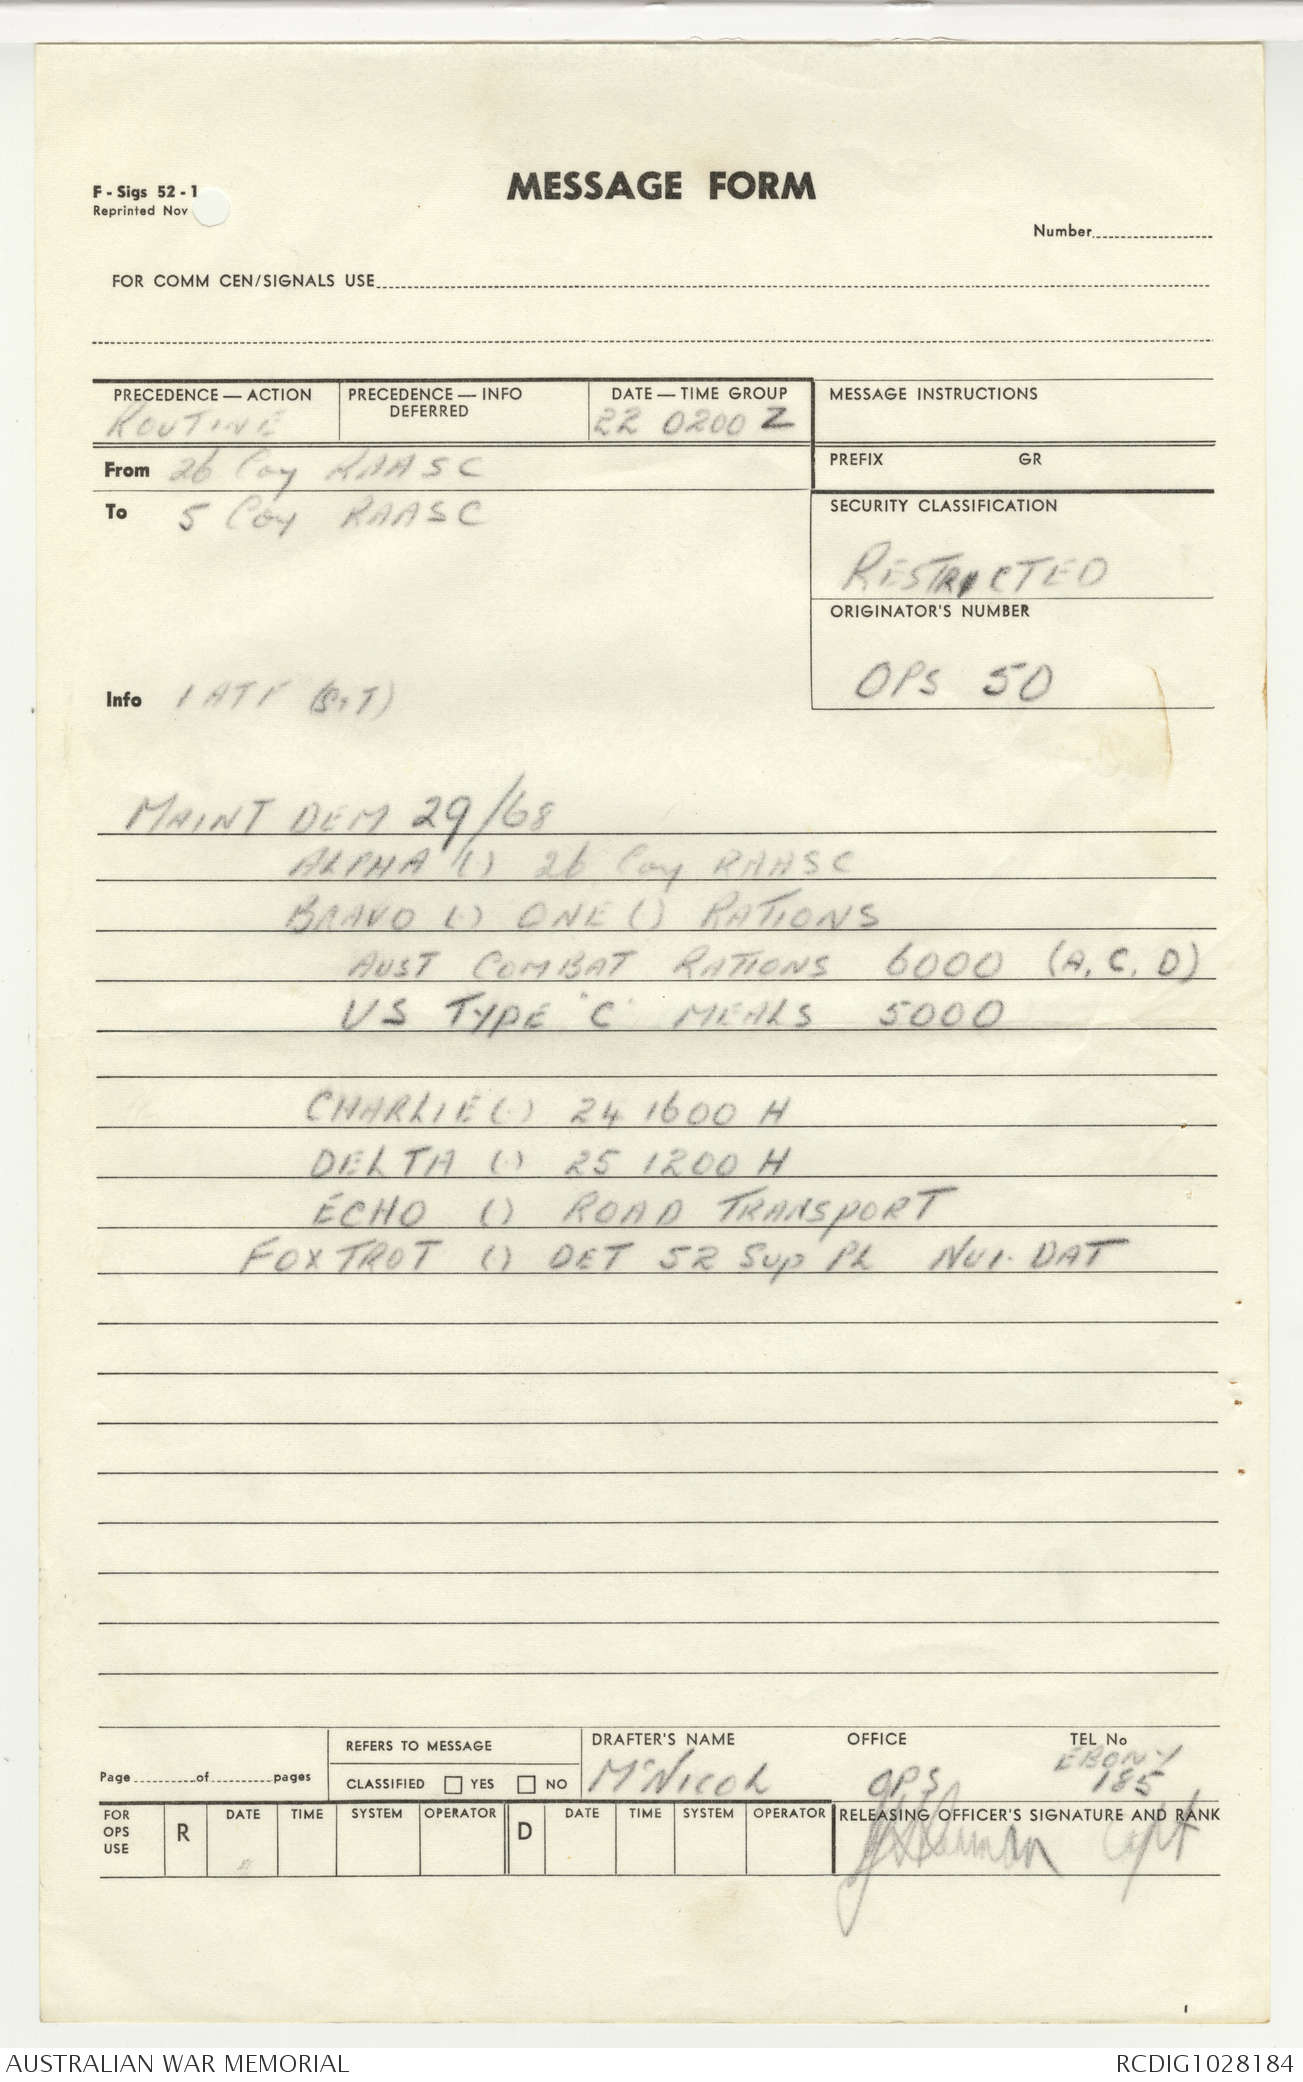 MESSAGE FORM
F - Sigs 52 - 1
Reprinted Nov
Number
FOR COMM CEN/SIGNALS USE
PRECEDENCE — ACTION
ROUTINE
PRECEDENCE — INFO
DEFERRED
DATE — TIME GROUP
22 0200 Z
MESSAGE INSTRUCTIONS
From 26 Coy RAASC
PREFIX GR
To 5 Coy RAASC
SECURITY CLASSIFICATION
RESTRICTED
ORIGINATOR'S NUMBER
OPS 50
Info 1 ATF (S+T)
MAINT DEM 29/68
ALPHA (.) 26 Coy RAASC
BRAVO (.) ONE (.) RATIONS
AUST COMBAT RATIONS 6000 (A, C, D)
US TYPE "C" MEALS 5000
CHARLIE (.) 24 1600 H
DELTA (.) 25 1200 H
ECHO (.) ROAD TRANSPORT
FOXTROT (.) DET 52 Sup PL NUI DAT
Page of pages
REFERS TO MESSAGE
CLASSIFIED YES NO
DRAFTER'S NAME
McNICOL
OFFICE
OPS
TEL No
EBONY
185
FOR
OPS
USE
R
DATE TIME SYSTEM OPERATOR
D
DATE TIME SYSTEM OPERATOR
RELEASING OFFICER'S SIGNATURE AND RANK
Capt
AUSTRALIAN WAR MEMORIAL
RCDIG1028184